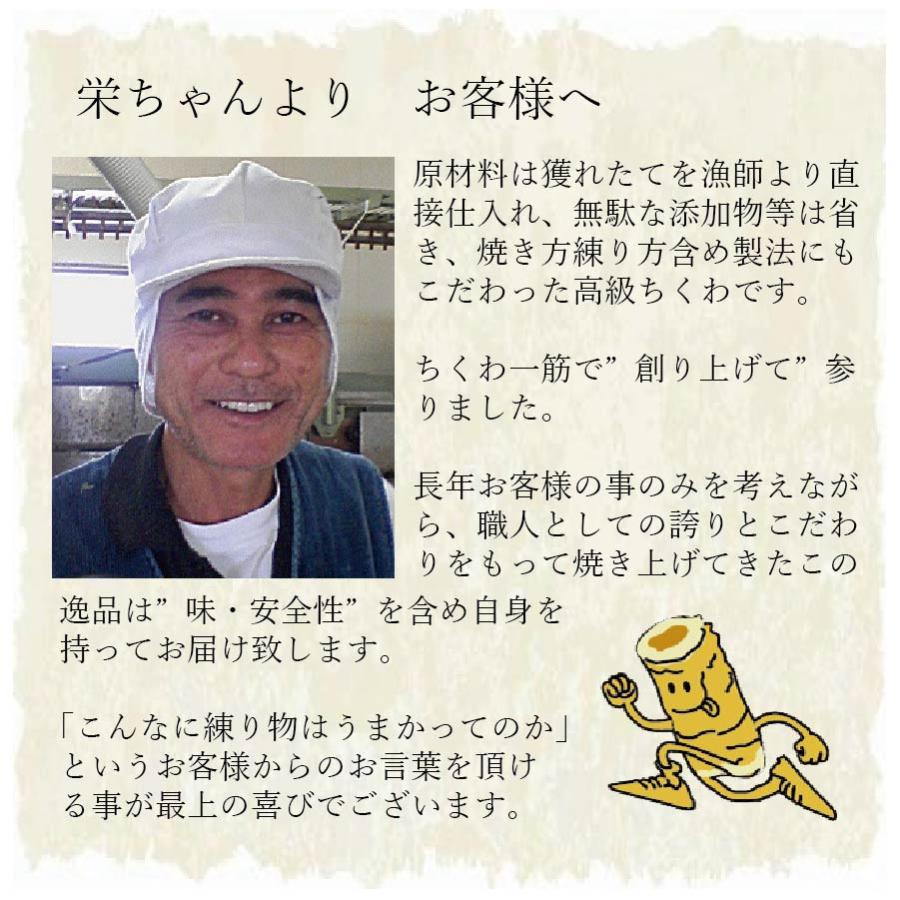 栄ちゃんより　お客様へ
原材料は獲れたてを漁師より直
接仕入れ、無駄な添加物等は省
き、焼き方練り方含め製法にも
こだわった高級ちくわです。
ちくわ一筋で”創り上げて”参
りました。
長年お客様の事のみを考えなが
ら、職人としての誇りとこだわ
りをもって焼き上げてきたこの
逸品は”味・安全性”を含め自身を
持ってお届け致します。
「こんなに練り物はうまかってのか」
というお客様からのお言葉を頂け
る事が最上の喜びでございます。